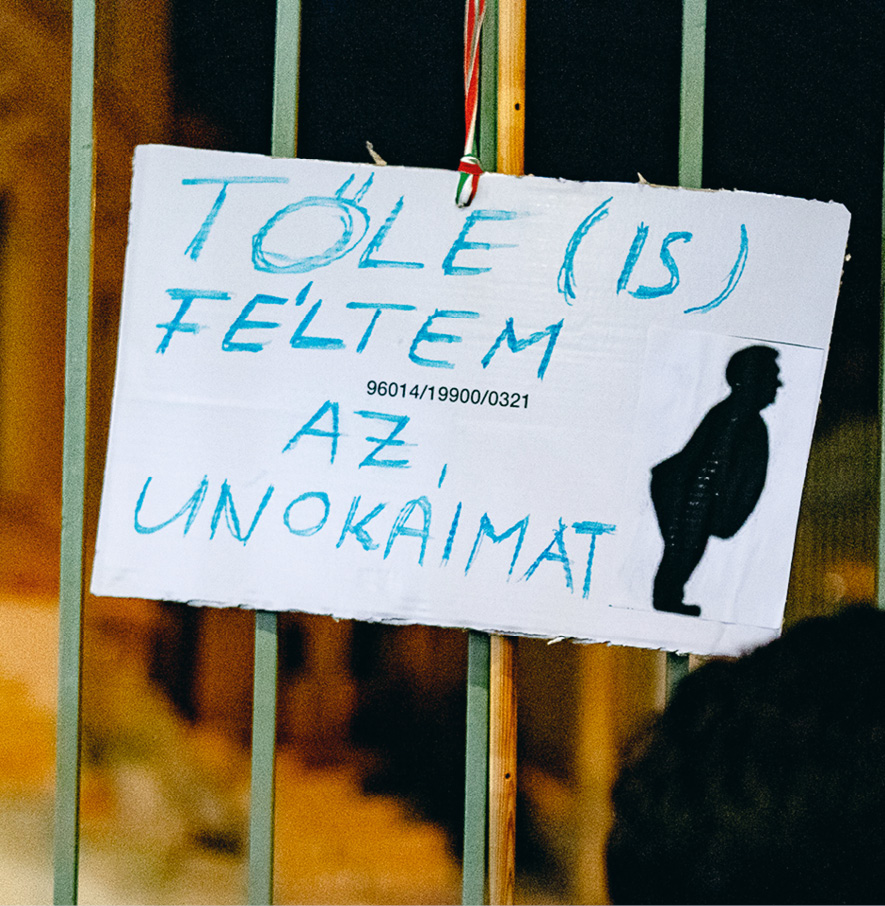 TŐLE (IS)
FÉLTEM
96014/19900/0321
AZ
UNOKÁIMAT